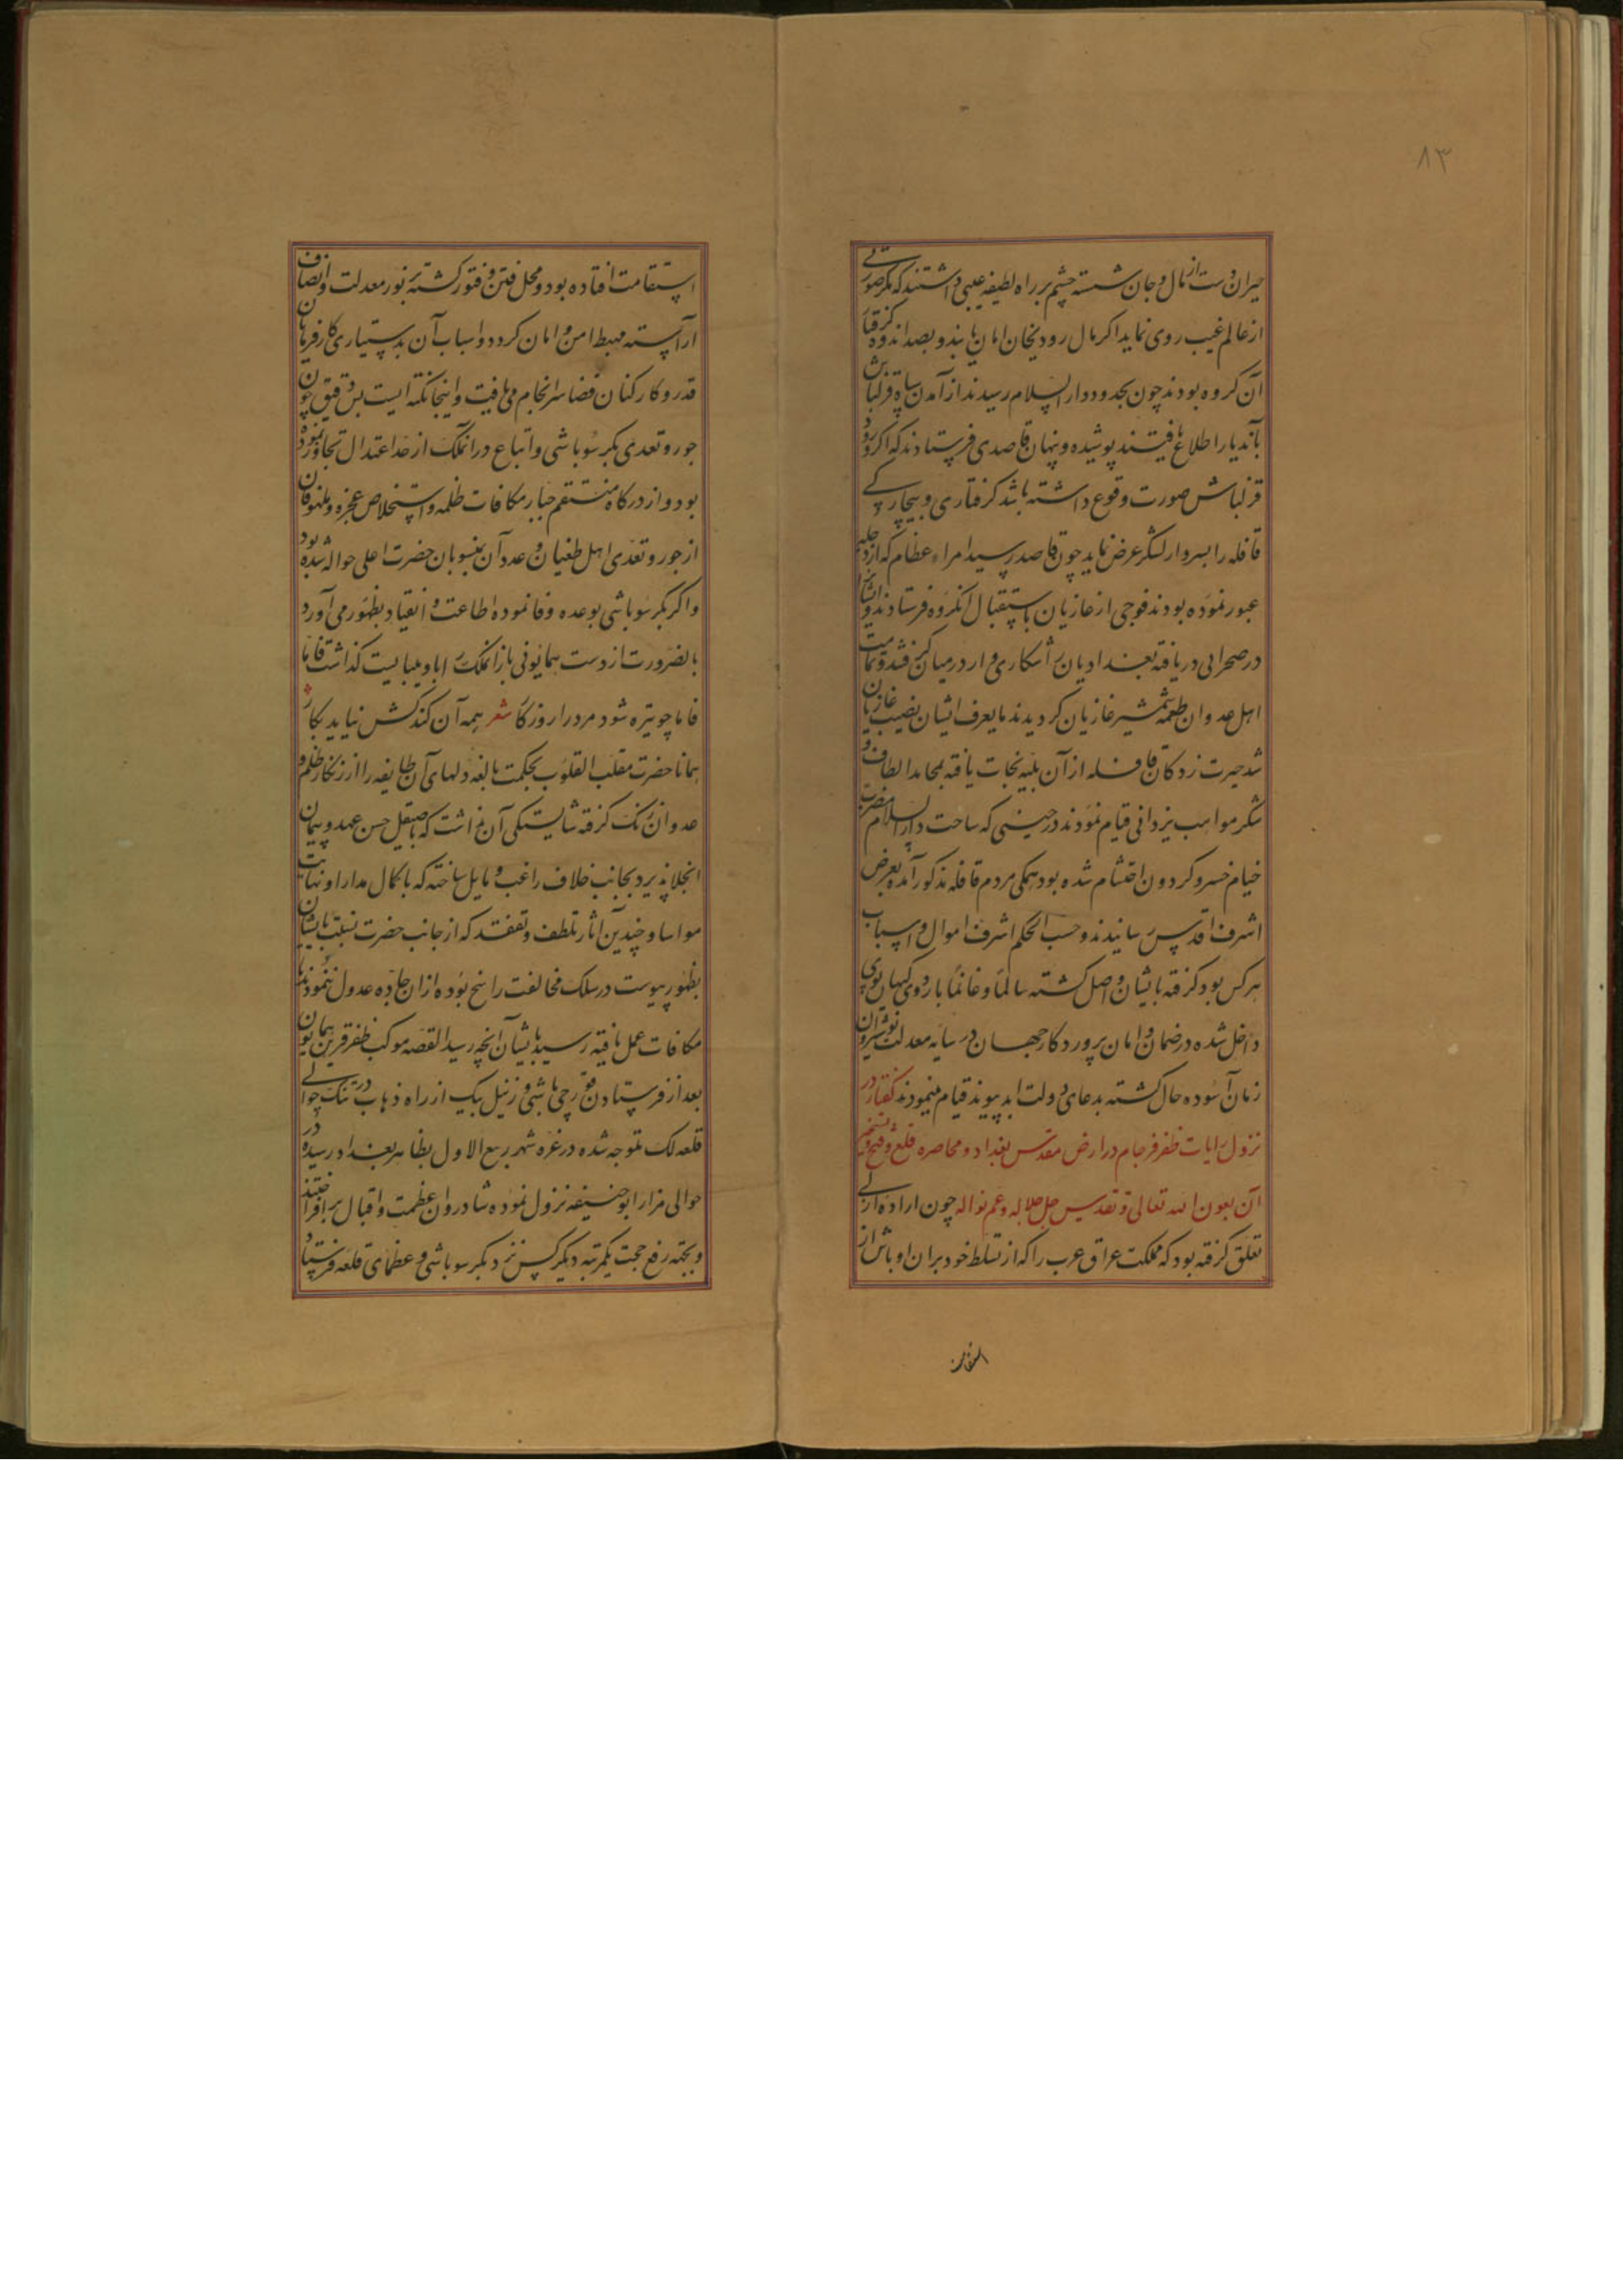 ۸۳
حیران دست از مال و جان شسته چشم بر راه لطیفه غیبی داشتند که مکر صورتی
از عالم غیب روی نماید اکر مال رود بجان امان یابند و بصد اندوه کرفتار
آن کروه بودند چون بحدود دار السلام رسیدند از آمدن سپاه قزلباش
بآندیار اطلاع یافتند پوشیده و پنهان قاصدی فرستادند که اکر ورود
قزلباش صورت وقوع داشته باشد کرفتاری و بیچارکی
قافله را بسردار لشکر عرض نماید چون قاصد رسید امراء عظام که از دجله
عبور نموده بودند فوجی از غازیان باستقبال آنکروه فرستادند و ایشانرا
در صحرایی دریافته بغدادیان را شکاری وار در میان کرفتند و تمامیت
اهل عدوان طعمه شمشیر غازیان کردیدند مایعرف ایشان نصیب غازیان
شد حیرت زدکان قافله از آن بلیه نجات یافته بمحامد الطاف و
شکر مواهب یزدانی قیام نمودند در حینی که ساحت دار السلام مضرب
خیام خسرو کردون احتشام شده بود همکی مردم قافله مذکور آمده بعرض
اشرف اقدس رسانیدند و حسب الحکم اشرف اموال و اسباب
هر کس بود کرفته بایشان واصل کشته سالما و غانما باردوی کیهان پوی
داخل شده در ضمان و امان پروردکار جهان در سایه معدلت نوشیروان
زمان آسوده حال کشته بدعای دولت ابد پیوند قیام مینمودند کفتار در
نزول رایات ظفر فرجام در ارض مقدس بغداد و محاصره قلعه و فتح و تسخیر
آن بعون الله تعالی و تقدیس جل جلاله و عم نواله چون اراده ازلی
تعلق کرفته بود که مملکت عراق عرب را که از تسلط خودسران اوباش از
استقامت
استقامت افتاده بود و محل فتن و فتور کشته بنور معدلت و انصاف
آراسته مهبط امن و امان کردد و اسباب آن بدستیاری کارفرمایان
قدر و کارکنان قضا سرانجام می یافت و اینجا نکته ایست بس دقیق چون
جور و تعدی بکر سوباشی و اتباع در انملک از حد اعتدال تجاوز نموده
بود و از درکاه منتقم جبار مکافات ظلمه و استخلاص عجزه و ملهوفان
از جور و تعدی اهل طغیان و عدوان بمنسوبان حضرت اعلی حواله شده بود
و اکر بکر سوباشی بوعده وفا نموده اطاعت و انقیاد بظهور می آورد
بالضرورت از دست همایونی باز انملک را باو میبایست کذاشت فاما
فاما چو تیره شود مرد را روزکار شعر همه آن کند کش نیاید بکار
همانا حضرت مقلب القلوب بحکمت بالغه دلهای آن طایفه را از زنکار ظلم و
عدوان زنک کرفته شایستکی آن نداشت که بصیقل حسن عهد و پیمان
انجلا پذیرد بجانب خلاف راغب و مایل ساخته که با کمال مدارا و نهایت
مواسا و چندین آثار تلطف و تفقد که از جانب حضرت نسبت بایشان
بظهور پیوست در سلک مخالفت راسخ بوده از ان جاده عدول ننمودند تا
مکافات عمل یافته رسید بایشان انچه رسید القصه موکب ظفر قرین همایون
بعد از فرستادن قورچی باشی و زینل بیک از راه ذهاب در تنک حوالی
قلعه لک متوجه شده در غره شهر ربیع الاول بظاهر بغداد رسیده در
حوالی مزار ابو حنیفه نزول نموده شادروان عظمت و اقبال برافراختند
و بجهة رفع حجت یکمرتبه دیکر کس نزد بکر سوباشی و عظمای قلعه فرستاد